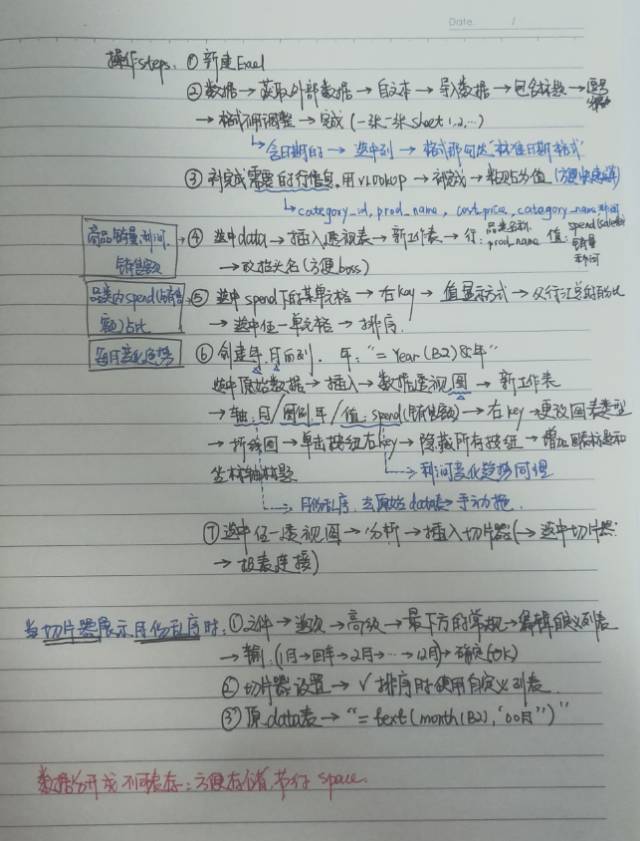 Date. /
操作steps. ① 新建Excel
② 数据→获取外部数据→自文本→导入数据→包含标题→逗号
→格式调整→完成(一张一张sheet 1,2,…)
含日期的→选中列→格式那勾选"标准日期格式"
③ 补完成需要的行信息,用vlookup→补完成→粘贴为值
category_id, prod_name, cost.price, category_name, 时间
商品销量,利润,销售额
④ 选中data→插入透视表→新工作表→行:品类名称 prod_name 值:spend(sales) 销量 利润
→改抬头名(方便boss)
品类内spend(销售额)占比
⑤ 选中spend下的某单元格→右key→值显示方式→父行汇总的百分比
→选中任一单元格→排序.
每月变化趋势
⑥ 创建年,月两列. 年:"=Year(B2)&年"
选中原始数据→插入→数据透视图→新工作表
→轴:月/图例:年/值:spend(销售额)→右key→更改图表类型
→折线图→单击按钮右key→隐藏所有按钮→增加图表标题和
坐标轴标题
利润变化趋势同理
月份乱序,去原始data表→手动拖.
⑦ 选中任一透视图→分析→插入切片器(→选中切片器
→报表连接)
当切片器展示月份乱序时:①文件→选项→高级→最下方的常规→编辑自定义列表
→输入(1月→回车→2月→…→12月)→确定(OK)
② 切片器设置→√排序时使用自定义列表.
③ 原data表→"=text(month(B2),"00月")"
数据分开成不同表存:方便存储,节约space.